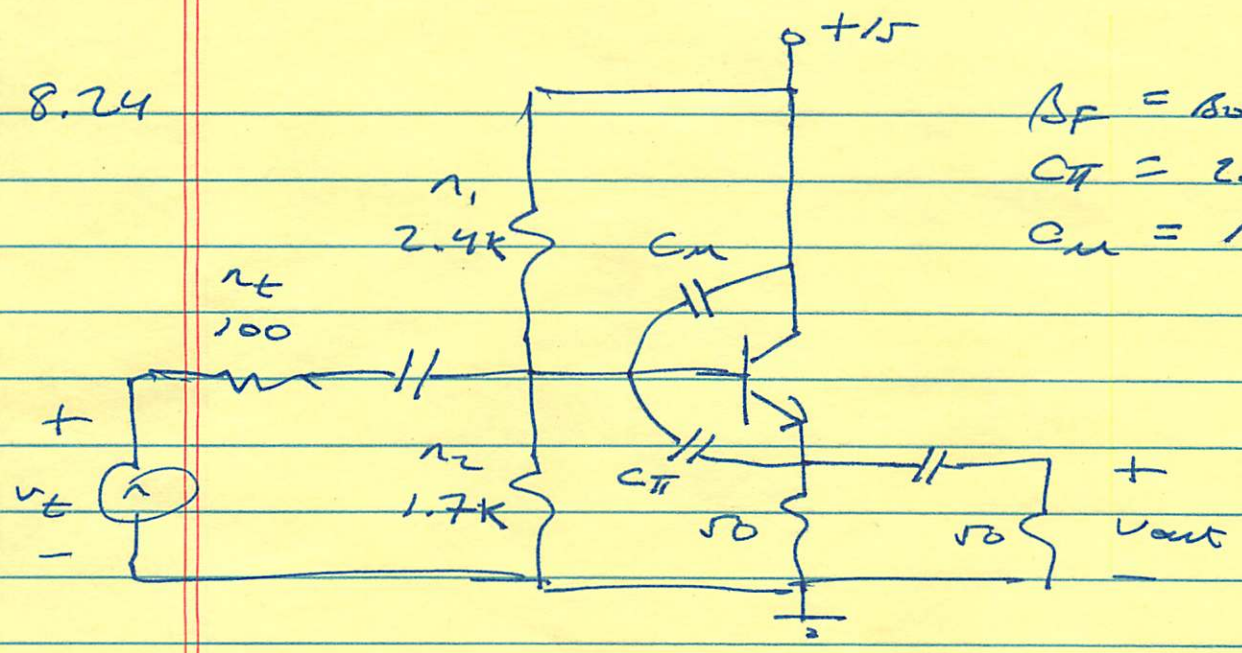 8.24
+15
βF = βo
Cπ = 2.
Cμ = 1
r1
2.4K
Cμ
rt
100
+
vt
-
r2
1.7K
Cπ
50
50
+
vout
-